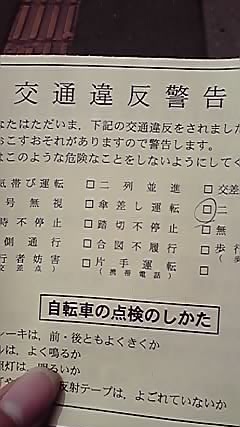 交通違反警告
なたはただいま、下記の交通違反をされました
おこすおそれがありますので警告します。
はこのような危険なことをしないようにしてく
気帯び運転 □二列並進 □交差
号無視 □傘差し運転 □二
時不停止 □踏切不停止 □無
側通行 □合図不履行 □歩行
行者妨害 □片手運転 □
交差点) (携帯電話)
自転車の点検のしかた
レーキは、前・後ともよくきくか
ルは、よく鳴るか
照灯は、明るいか
反射テープは、よごれていないか